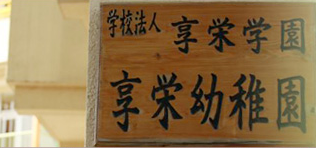 学校法人 享栄学園
享栄幼稚園